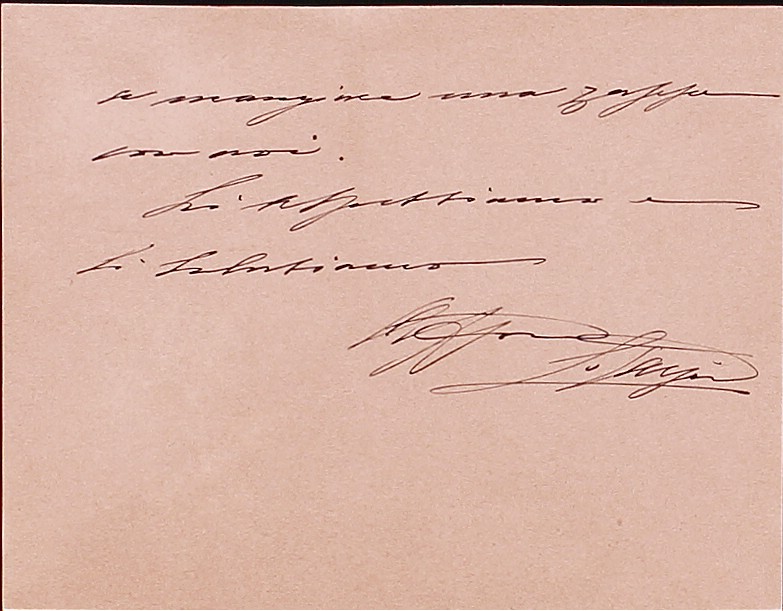 a mangiare una zuppa
con noi.
Ti aspettiamo e
ti salutiamo